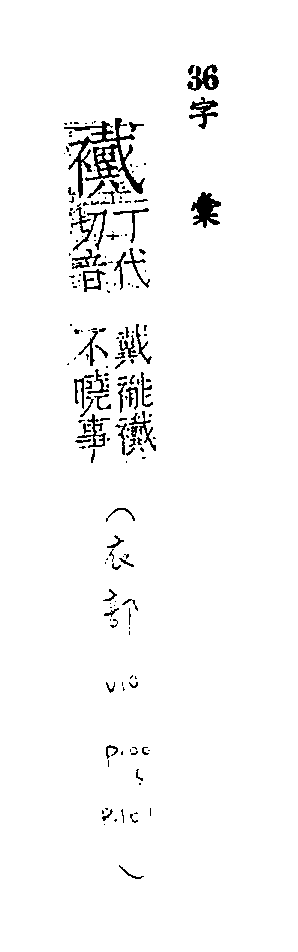 36 字彙
襶
丁代
切音
戴褦襶
不曉事
(衣部 V10 P.100 〜 P.101)